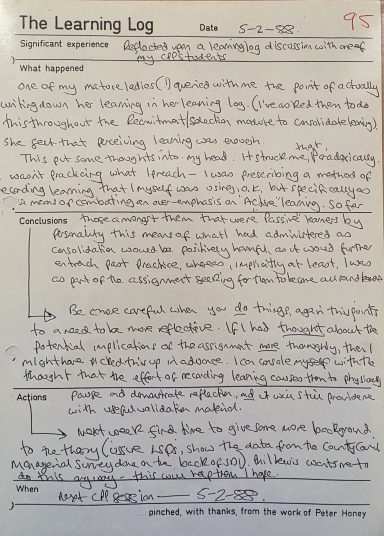 The Learning Log
Date 5-2-88.
95
Significant experience Reflected upon a learning log discussion with one of
my CPP students
What happened
One of my mature ladies (!) queried with me the point of actually
writing down her learning in her learning log. (I've asked them to do
this throughout the Recruitment/Selection module to consolidate learning).
She felt that perceiving learning was enough.
This put some thoughts into my head. It struck me that, paradoxically,
I wasn't practicing what I preach - I was prescribing a method of
recording learning that I myself was using, o.k., but specifically as
a means of combating an over-emphasis on 'Active' learning. So for
Conclusions those amongst them that were Passive learners by
personality this means of what I had administered as
consolidation would be positively harmful, as it would further
entrench past practice, whereas, implicitly at least, I was
as part of the assignment seeking for them to become all round learners
Be more careful when you do things, again this points
to a need to be more reflective. If I had thought about the
potential implications of the assignment more thoroughly, then I
might have picked this up in advance. I can console myself with the
thought that the effort of recording learning causes them to physically
Actions pause and demonstrate reflection, and it will still provide me
with useful validation material.
Next week find time to give some more background
to the theory (issue LSQs, show the data from the County Council
Managerial Survey done on the back of SD1). Phil Lewis wants me to
do this anyway - this will help them I hope.
When Next CPP session — 5-2-88.
....pinched, with thanks, from the work of Peter Honey